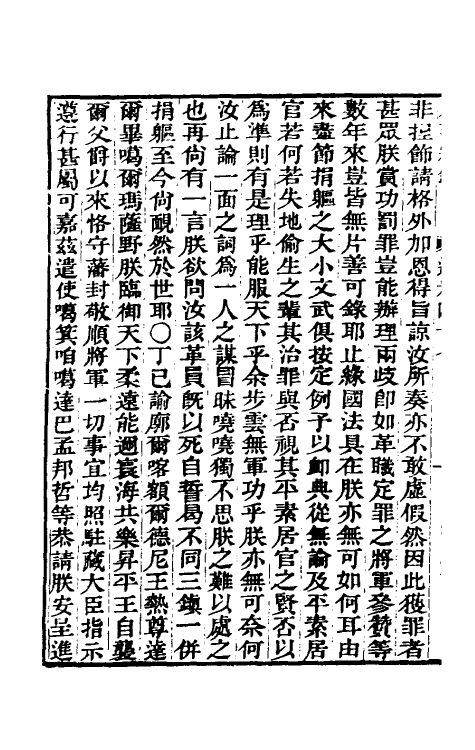 非捏飾請格外加恩得旨諒汝所奏亦不敢虛假然因此獲罪者
甚眾朕賞功罰罪豈能辦理兩歧卽如革職定罪之將軍參贊等
數年來豈皆無片善可錄耶止緣國法具在朕亦無可如何耳由
來盡節捐軀之大小文武俱按定例予以卹典從無論及平素居
官若何若失地偷生之輩其治罪與否視其平素居官之賢否以
為準則有是理乎能服天下乎余步雲無軍功乎朕亦無可奈何
汝止論一面之詞為一人之謀冒昧嘵嘵獨不思朕之難以處之
也再尙有一言朕欲問汝該革員旣以死自誓曷不同三鎮一併
捐軀至今尙靦然於世耶〇丁巳諭廓爾喀額爾德尼王熱尊達
爾畢噶爾瑪薩野朕臨御天下柔遠能邇寰海共樂昇平王自襲
爾父爵以來恪守藩封敬順將軍一切事宜均照駐藏大臣指示
遵行甚屬可嘉茲遣使噶箕咱噶達巴孟邦哲等恭請朕安呈進